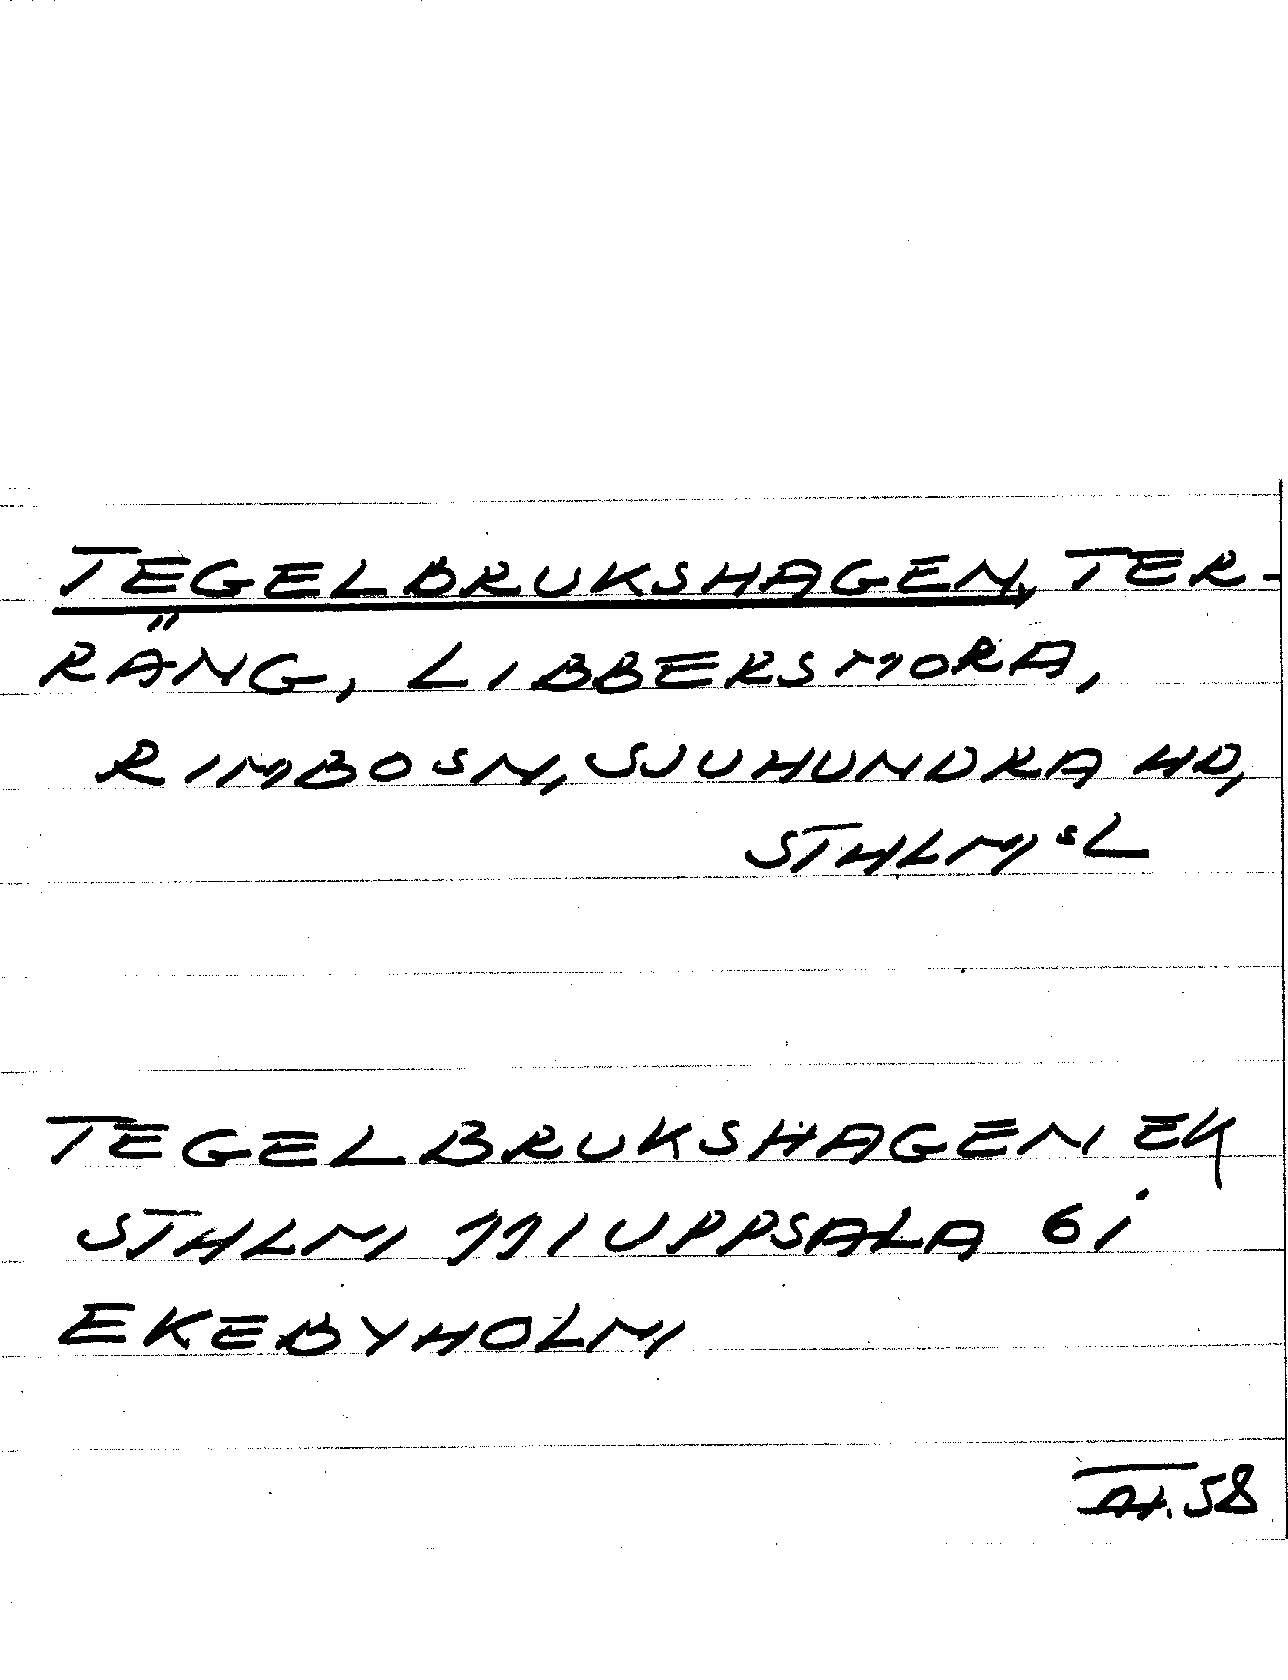 TEGELBRUKSHAGEN, TER-
RÄNG, LIBBERSMORA,
RIMBO SN, SJUHUNDRA HD,
STHLMSL
TEGELBRUKSHAGEN EK
STHLM 111 UPPSALA 6i
EKEBYHOLM
58